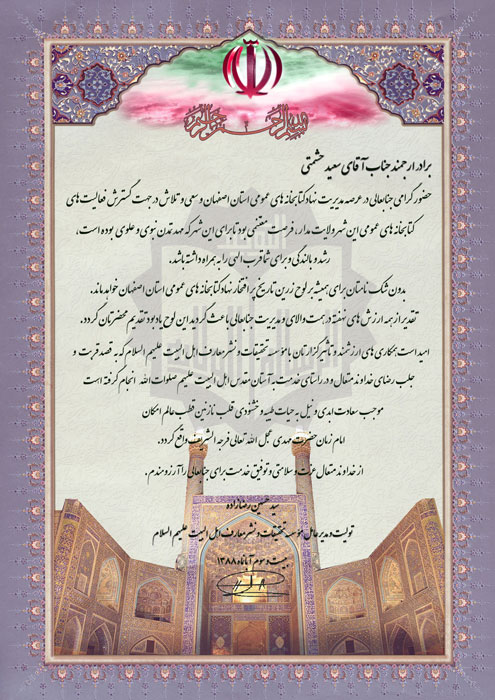 بسم الله الرحمن الرحیم
برادر ارجمند جناب آقای سعید حشمتی
حضور گرامی جنابعالی در عرصه مدیریت نهاد کتابخانه های عمومی استان اصفهان و سعی و تلاش در جهت گسترش فعالیت های
کتابخانه های عمومی این شهر ولایت مدار، فرصت مغتنمی بود تا برای این شهر که مهد تمدن نبوی و علوی بوده است،
رشد و بالندگی و برای شما قرب الهی را به همراه داشته باشد.
بدون شک نامتان برای همیشه بر لوح زرین تاریخ پر افتخار نهاد کتابخانه های عمومی استان اصفهان خواهد ماند.
تقدیر از همه ارزش های نهفته در همت والای و مدیریت جنابعالی باعث گردید این لوح یادبود تقدیم محضرتان گردد.
امید است همکاری های ارزشمند و تأثیرگذارتان با مؤسسه تحقیقات و نشر معارف اهل البیت علیهم السلام که به قصد قربت و
جلب رضای خداوند متعال و در راستای خدمت به آستان مقدس اهل البیت علیهم صلوات الله انجام گرفته است
موجب سعادت ابدی و نیل به حیات طیبه و خشنودی قلب نازنین قطب عالم امکان
امام زمان حضرت مهدی عجل الله تعالی فرجه الشریف واقع گردد.
از خداوند متعال عزت و سلامتی و توفیق خدمت برای جنابعالی را آرزومندم.
سید حسین رضازاده
تولیت و مدیرعامل مؤسسه تحقیقات و نشر معارف اهل البیت علیهم السلام
بیست و سوم آبانماه ۱۳۸۸